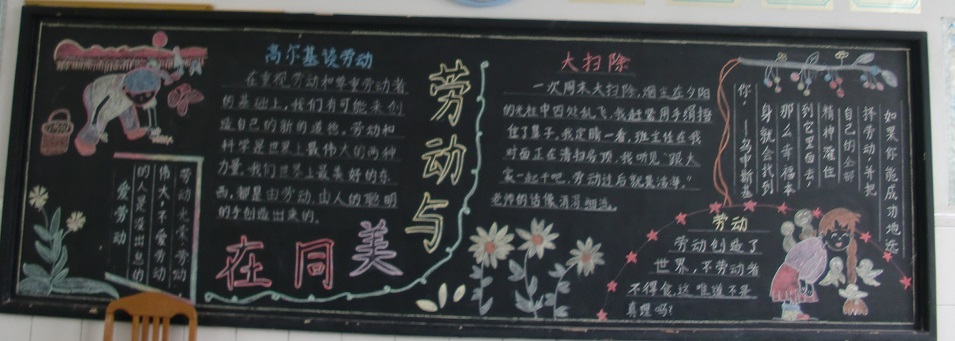 高尔基谈劳动
在重视劳动和尊重劳动者
的基础上，我们有可能来创
造自己的新的道德，劳动和
科学是世界上最伟大的两种
力量。我们世界上最美好的东
西，都是由劳动、由人的聪明
的手创造出来的。
劳动光荣、劳动
伟大，不爱劳动
的人是没出息的
爱劳动
劳动与
美同在
大扫除
一次周末大扫除，烟尘在夕阳
的光柱中四处乱飞，我赶紧用手绢捂
住了鼻子。我定睛一看，班主任在我
对面正在清扫房顶，我听见“跟大
家一起干吧，劳动过后就是洁净。”
老师的话像涓涓细流。
如果你能成功地选
择劳动，并把
自己的全部
精神灌住
到它里面去，
那么幸福本
身就会找到
你，——乌申斯基
劳动
劳动创造了
世界，不劳动者
不得食，这难道不是
真理吗？